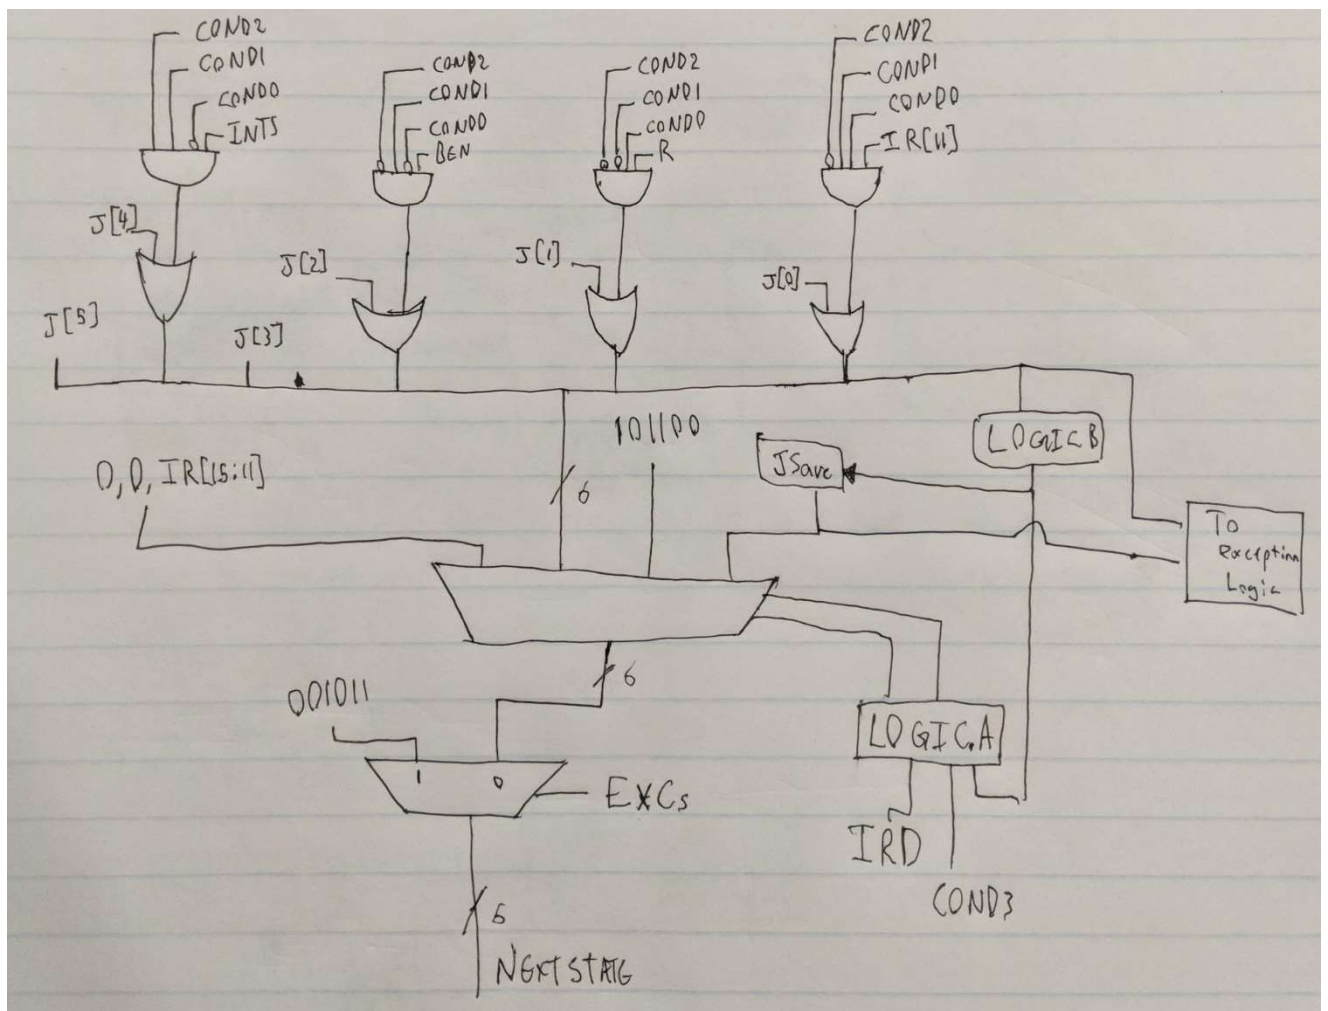 COND2
COND1
COND0
INTS
COND2
COND1
COND0
BEN
COND2
COND1
COND0
R
COND2
COND1
COND0
IR[11]
J[4]
J[2]
J[1]
J[0]
J[5]
J[3]
101100
LOGICB
JSave
0,0,IR[15:11]
6
To
Exception
Logic
6
001011
LOGIC.A
1
0
EXCs
IRD
COND3
6
NEXTSTATE